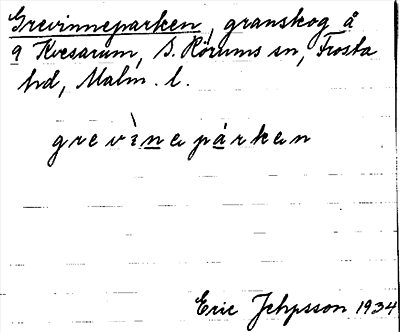 Grevinneparken, granskog å
9 Kvesarum, S. Rörums sn, Frosta
hd, Malm. l.
grevìne párken
Eric Jehpsson 1934